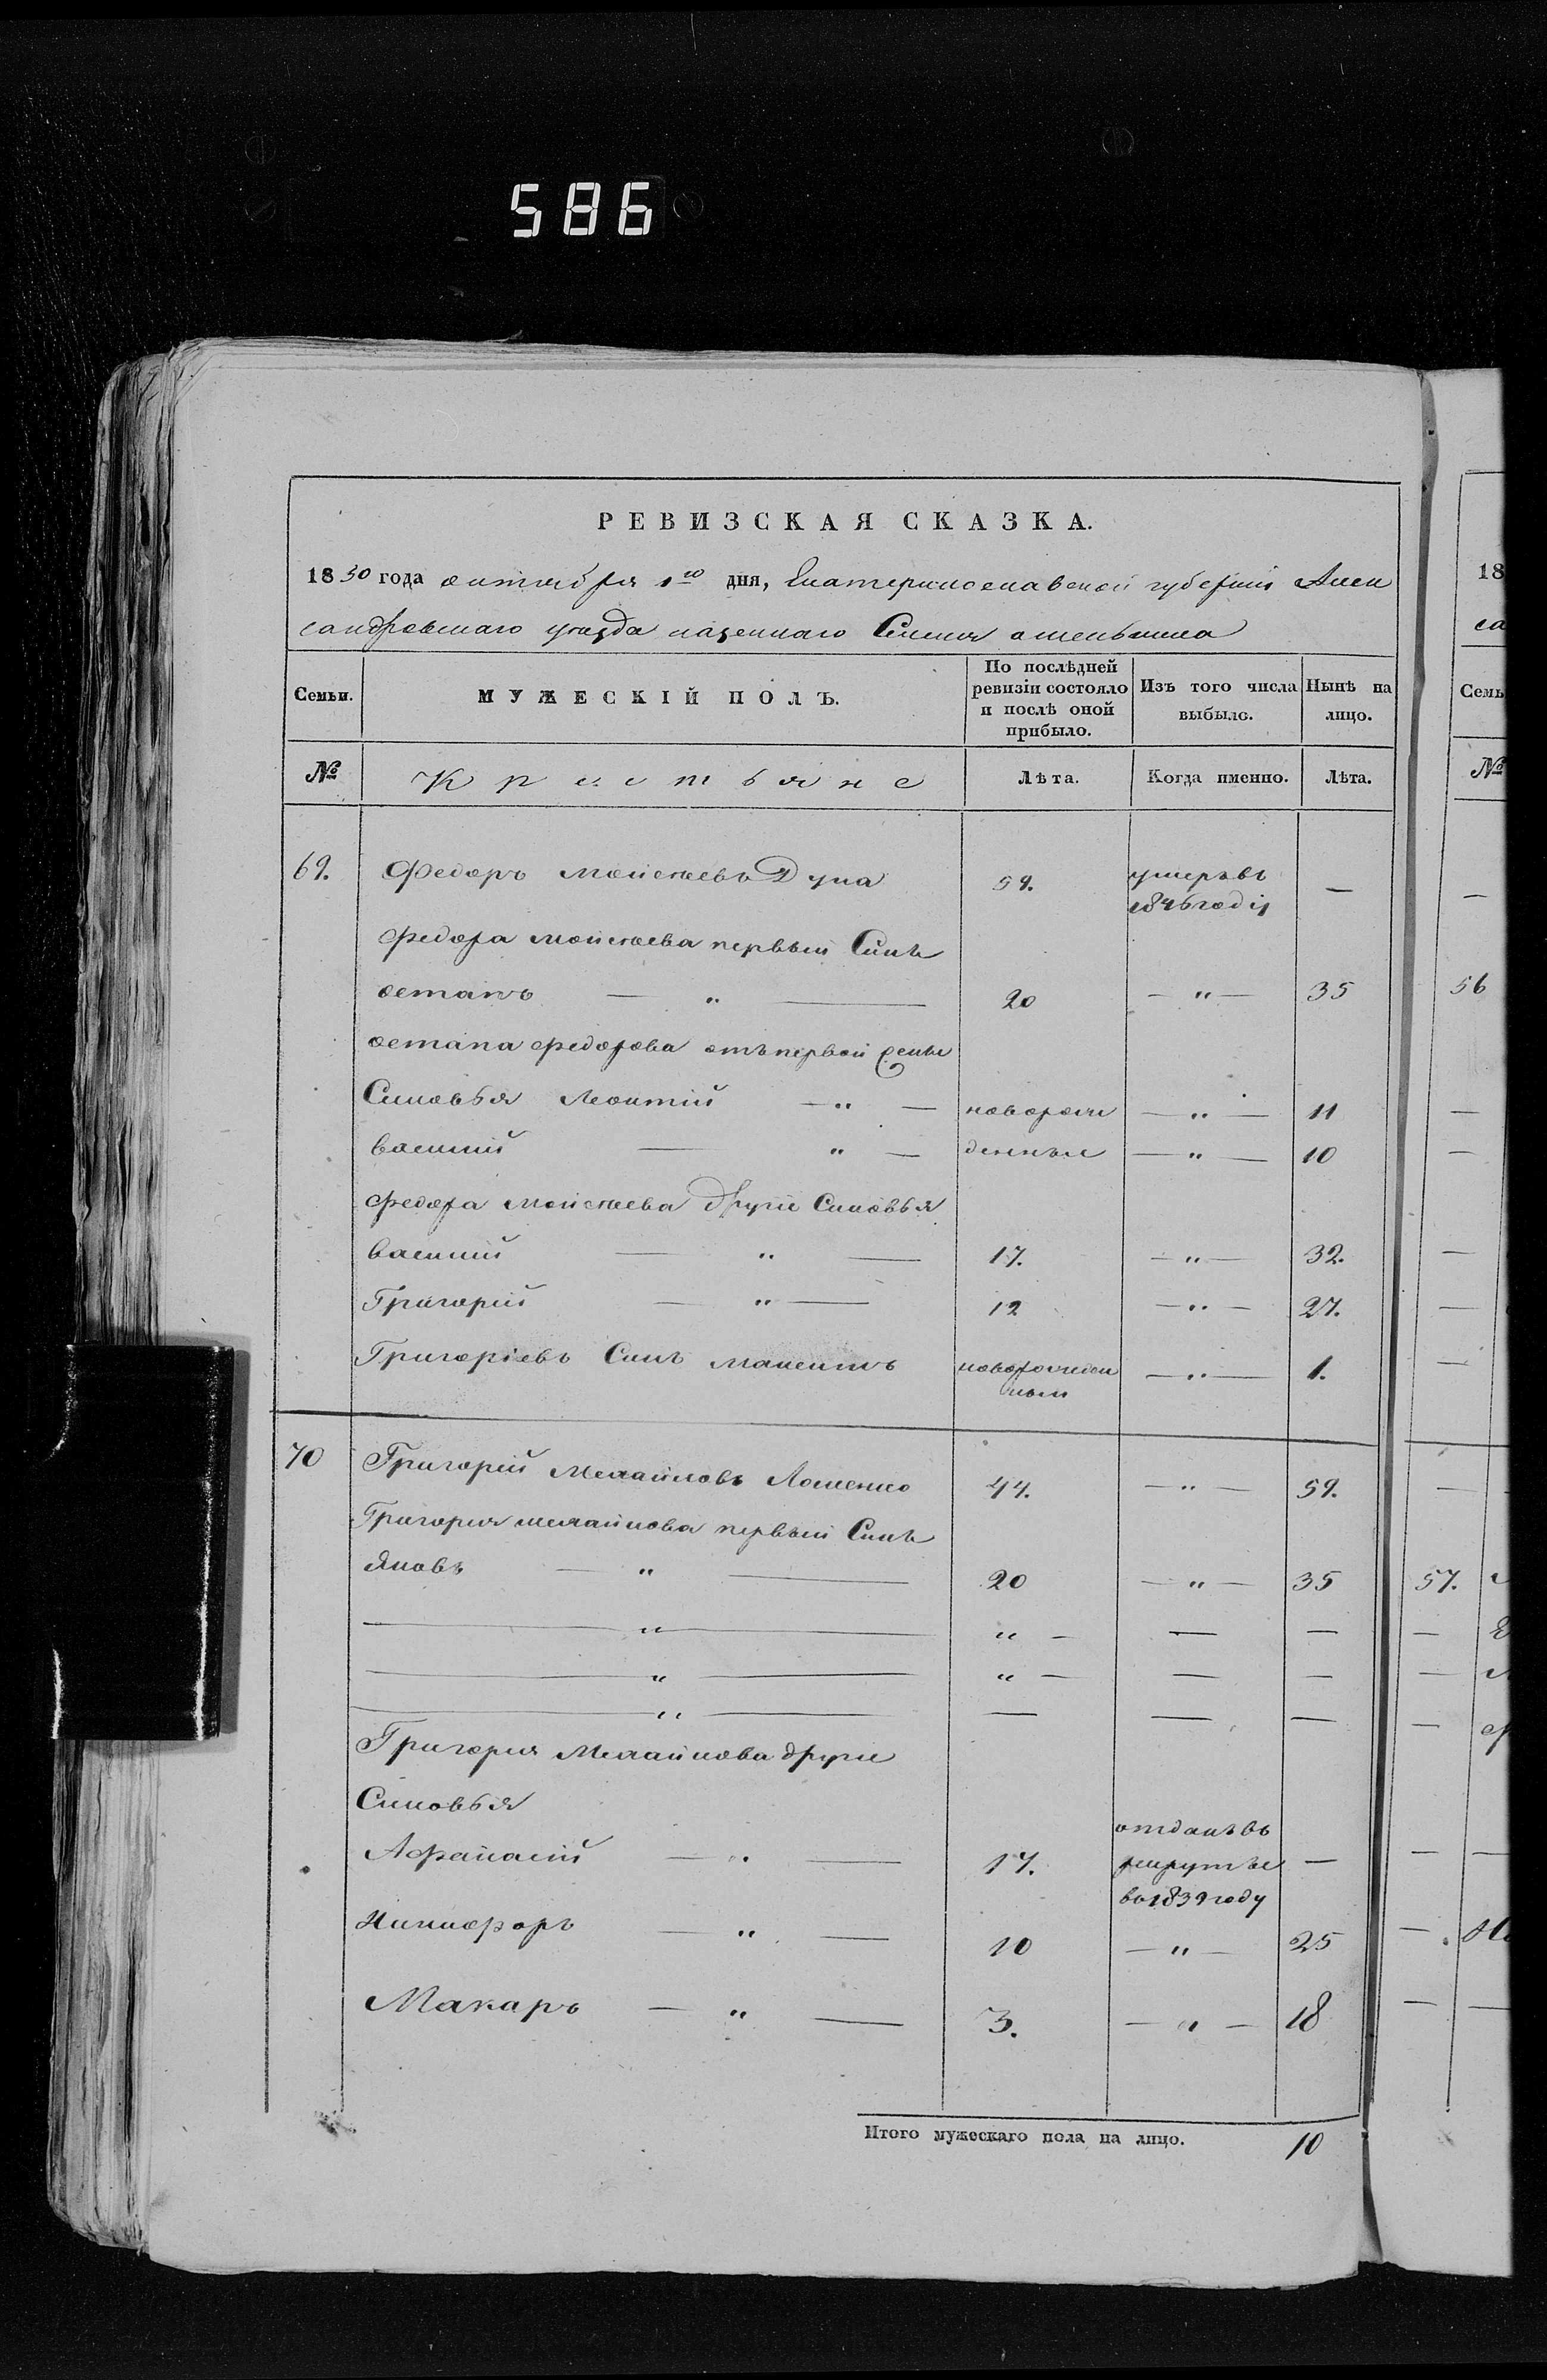 586
РЕВИЗСКАЯ СКАЗКА.
1850 года октября 1го дня, Екатеринославской губернии Алек
сандровскаго уезда казеннаго Селения
Семьи. МУЖЕСКІЙ ПОЛЪ. По послѣдней ревизіи состояло и послѣ оной прибыло. Изъ того числа выбыло. Нынѣ на лицо.
№ Крестьяне Лѣта. Когда именно. Лѣта.
69. Федоръ Моисеевъ Дука 59. умеръ въ 1846 годѣ —
Федора Моисеева первый Синъ
остапъ — " — 20 — " — 35
остапа федорова отъ первой
Синовья Леонтій — " — новорож — " — 11
василий — " — денные — " — 10
Федора Моисеева другие Синовья
василий — " — 17. — " — 32.
Григорий — " — 12 — " — 27.
Григоріевъ Синъ Максимъ новорожден ный — " — 1.
70 Григорий Михайловъ 44. — " — 59.
Григория михайлова первый Синъ
Яковъ — " — 20 — " — 35
— " — " — — —
— " — " — — —
— " — — — —
Григория Михайлова другие
Синовья
Афанасий — " — 17. отданъ въ рекруты во 1839 году —
Никифоръ — " — 10 — " — 25
Макаръ — " — 3. — " — 18
Итого мужескаго пола на лицо. 10
18
са
Семь
№
56
57.